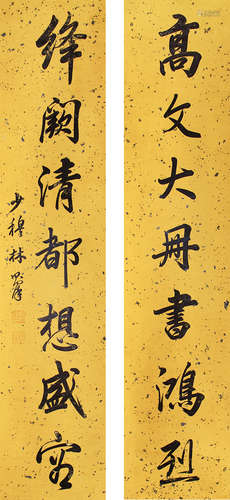 高文大册書鴻烈
絳闕清都想盛容
少穆林則徐